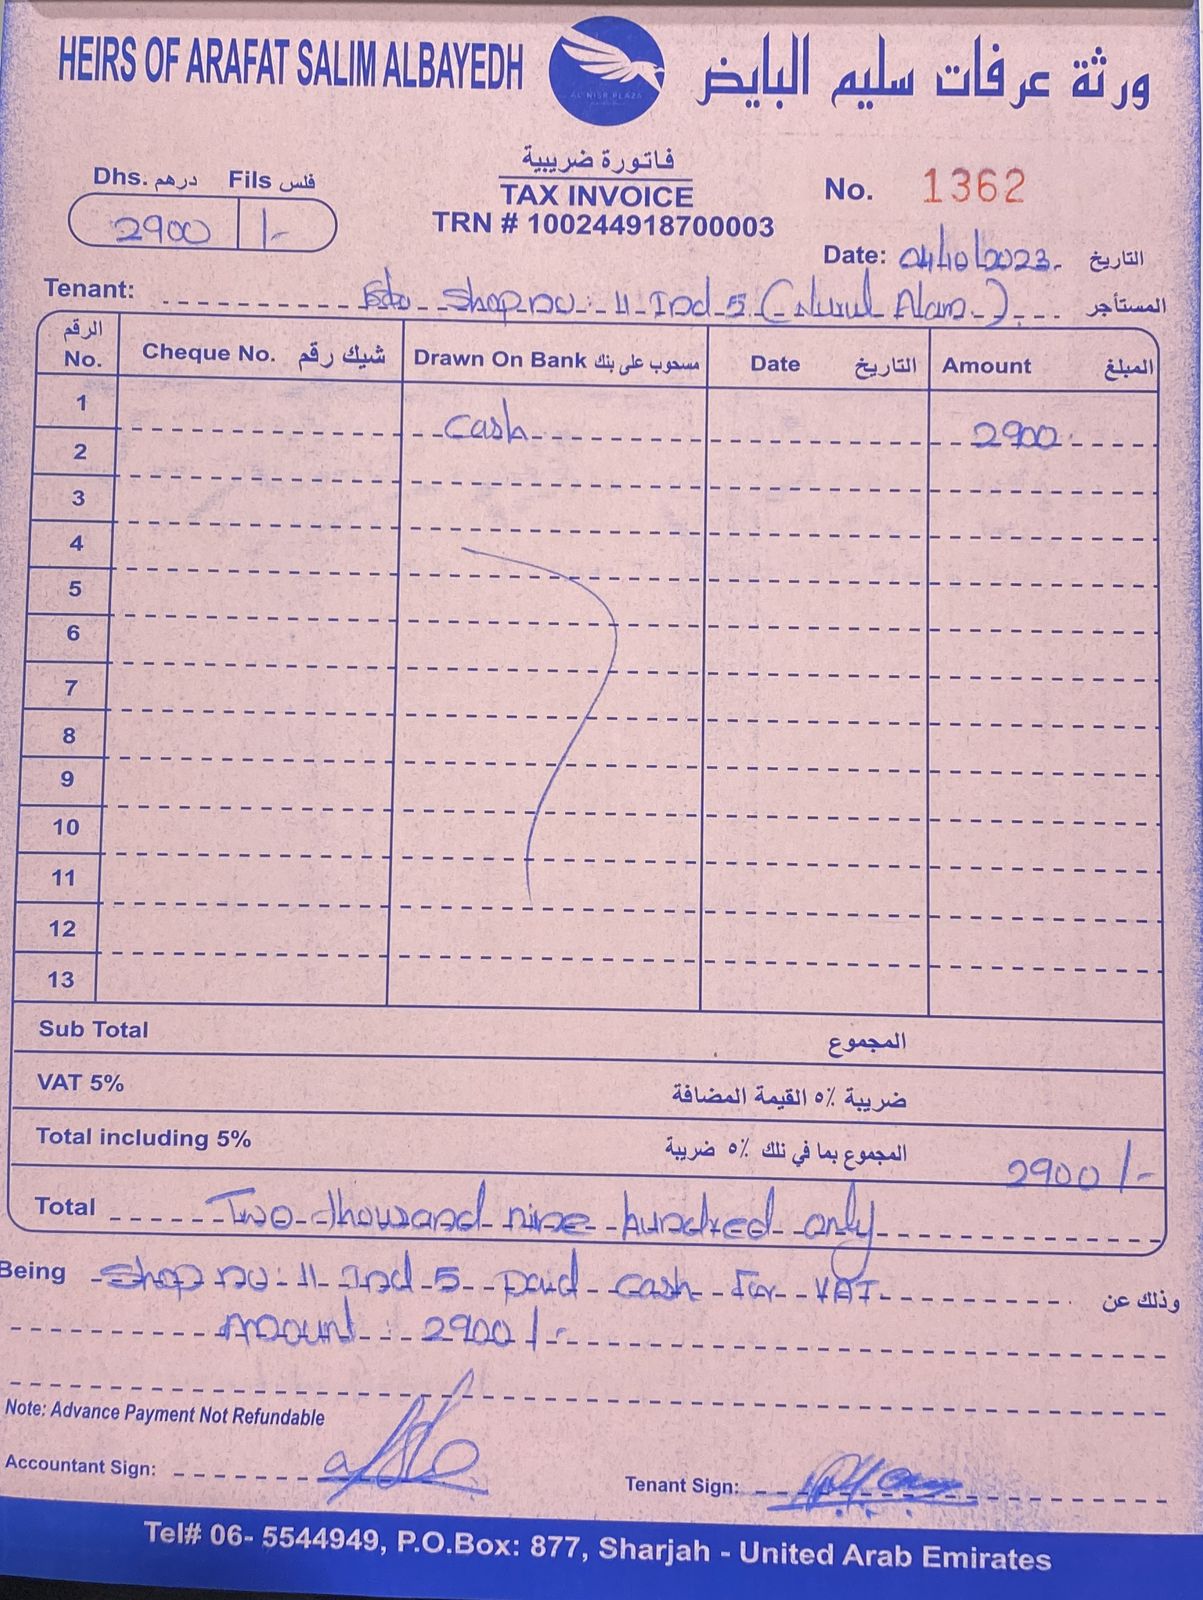 HEIRS OF ARAFAT SALIM ALBAYEDH
ورثة عرفات سليم البايض
AL NISR PLAZA
فاتورة ضريبية
TAX INVOICE
TRN # 100244918700003
Dhs. درهم Fils فلس
2900 /-
No. 1362
Date: 04/10/2023. التاريخ
Tenant: Shop no: 11 Ind 5 (Nurul Alam) المستأجر
الرقم No. Cheque No. شيك رقم Drawn On Bank مسحوب على بنك Date التاريخ Amount المبلغ
1 Cash 2900
2
3
4
5
6
7
8
9
10
11
12
13
Sub Total المجموع
VAT 5% ضريبة ٥٪ القيمة المضافة
Total including 5% المجموع بما في نلك ٥٪ ضريبة 2900/-
Total Two thousand nine hundred only
Being Shop no: 11 Ind 5 paid cash for VAT وذلك عن
Amount: 2900/-
Note: Advance Payment Not Refundable
Accountant Sign:
Tenant Sign:
Tel# 06- 5544949, P.O.Box: 877, Sharjah - United Arab Emirates